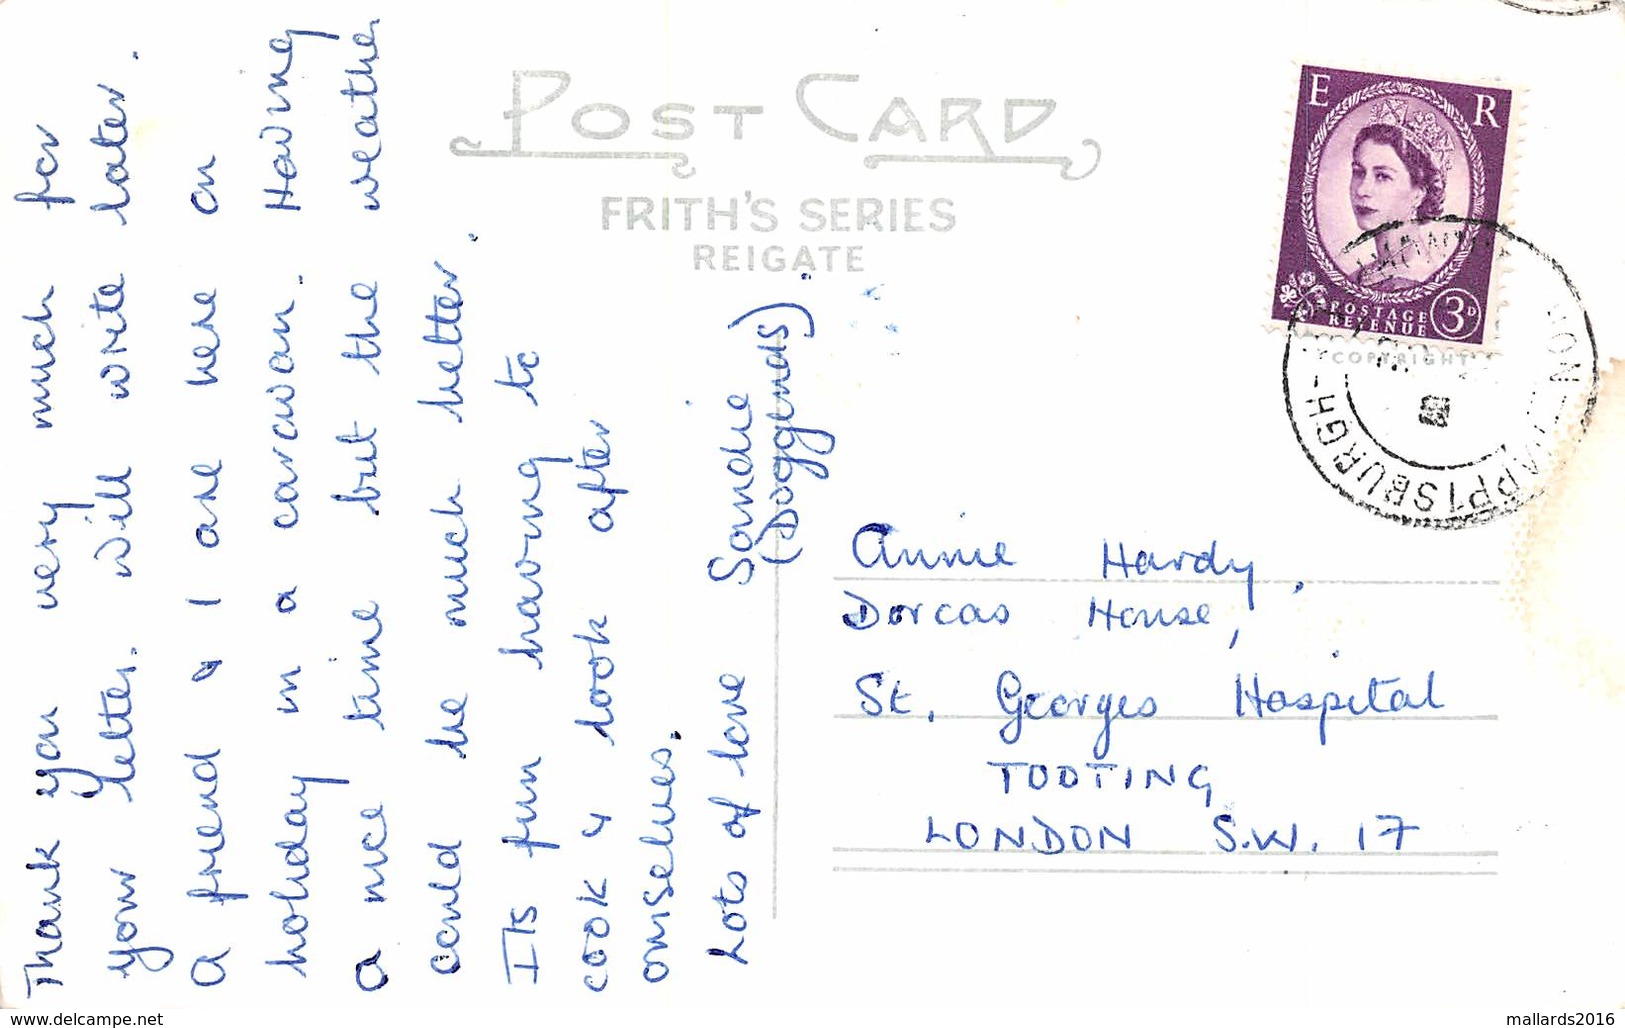 POST CARD
FRITH'S SERIES
REIGATE
E R
POSTAGE
REVENUE
3D
COPYRIGHT
HAPPISBURGH
Thank you very much for
your letter. Will write later.
A friend & I are here on
holiday in a caravan. Having
a nice time but the weather
could be much better.
Its fun having to
cook & look after
ourselves.
Lots of love Sandie
(Doggends).
Annie Hardy,
Dorcas House,
St. Georges Hospital
TOOTING
LONDON S.W. 17
www.delcampe.net
mallards2016